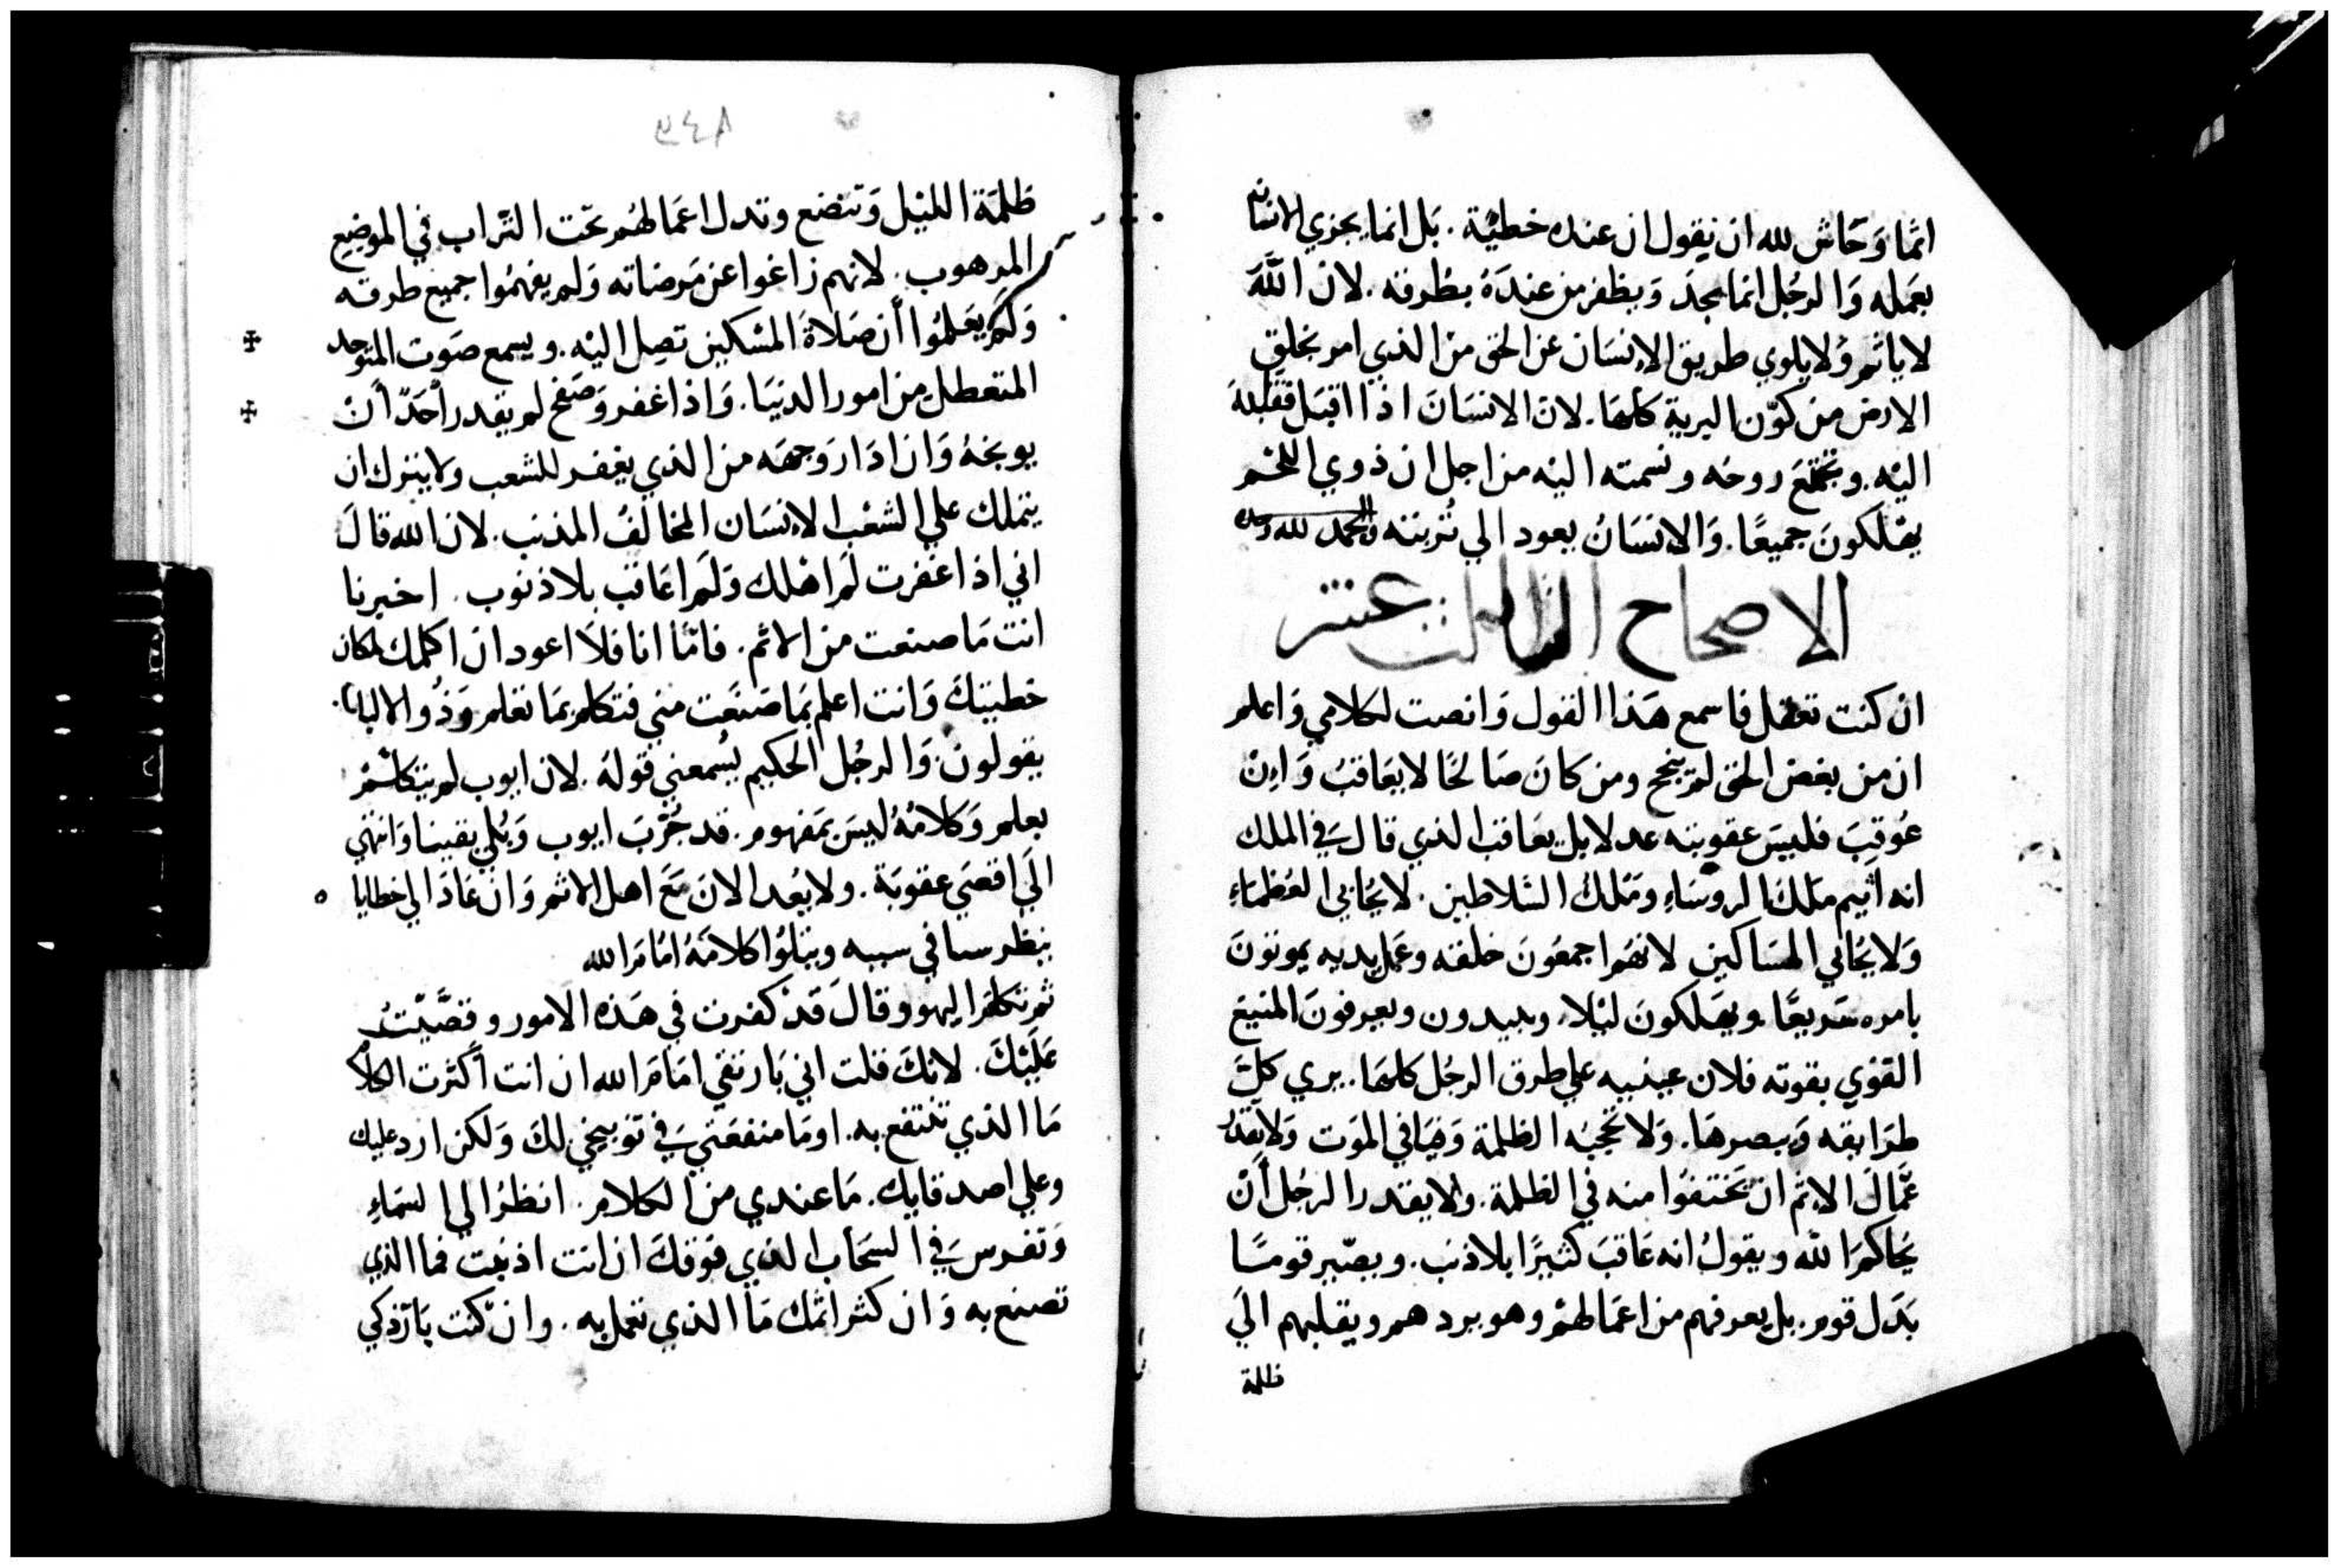 اثما وَحَاش لله ان نقول ان عنده خطيّة . بَل انما يجزي الانسان
بعَمله وَالرجُل انما يجدَ وَيظفر من عندَهُ بطُرقه . لان اللَّه
لا ياثم وَلا يلوي طريق الإنسَان عن الحق من الذي امر بخلق
الارض من كوّن البرية كلهَا . لان الانسَان اذا اقبَل فقلبه
اليْه . وتجتمَع روحه ونسمته اليْه من اجل ان ذوي اللحْم
يهْلكونَ جميعًا . وَالانسَانُ يعود الي تُربته والحمد لله وحده
الاصحاح الثالث عشر
ان كنت تعقل فاسمع هَذا القول وَانصت لكلامي وَاعلم
ان من يبغض الحق لم ينجح ومن كانَ صَالحًا لا يعَاقبُ وَاِنْ
عُوقِبَ فليسَ عقوبته عدلا بل يعَاقب الذي قال في الملك
انه اثيم ملك الروسَاءِ ومَلك السَّلاطين . لا يحُابي العُظمَاءِ
وَلا يُحابي المسَاكين لانهَم اجمعُونَ خلقه وعَمل يديه يموتونَ
بامره سَريعًا . ويهَلكونَ ليْلا . ويبيدون ويعرفونَ المنيع
القوْي بقوته فلان عينيه علي طرق الرجُل كلهَا . يري كلَّ
طرَايقه وَيبصرهَا . وَلا تحجبُه الظلمة وَفيَافي الموَت وَلا يقدر
عمَّالَ الاثم ان يَختفُوا منه في الظلمة . ولا يقدر الرجُل أنْ
يُحاكم الله ويقولُ انه عَاقبَ كثيرًا بلا ذنب . ويصّير قومًا
بَدَل قوم . بل يعرفهم من اعمَالهُم وهو يردهم ويقلبهم الَي
ظلمة
٣٤٨
ظلمَة الليْل وَتتضع وتدل اعمَالهُم تحَت التّراب في الموضِع
المرهوب . لانهم زاغوا عن مَرضاته وَلم يفهمُوا جميع طرقه
وَلم يعَلمُوا أن صَلاةَ المسْكين تصِل اليْه . ويسمع صَوت المتوحد
المتعطل من امور الدنيَا . وَاذا غفر وَصَفح لم يقدر أحَدّ أنْ
يوبخهُ وَان ادَار وَجهَه من الذي يغفر للشعب ولا يترك ان
يتملك علي الشعْب الإنسَان المخالفُ المذنب . لان الله قالَ
اني اذا غفرت لَم اهْلك وَلَم اعَاقب بلا ذنوب . اخبرنا
انت مَا صنعت من الاثم . فامّا انا فلَا اعود ان اكلمك لمكان
خطيتكَ وَانت اعلم بمَا صَنعَت مني فتكلم بمَا تعلم وَذوُ الالباب .
يقولون وَالرجُل الحكيم يُسمعني قولهُ . لان ايوب لم يتكلم
بعلم وَكلامُهُ ليسَ بمَفهوم . قد جُرّبَ ايوب وَبُلي يقينا وَانتهي
الَي اقصَي عقوبَة . ولا يعُد الانَ مَع اهل الاثم وَان عَادَ الي خطايا ٥
ينظر سنا في سببه ويتلوُا كلامَهُ امُامَ الله
ثم تكلمَ اليهو وقالَ قَدْ كفرت في هَذه الامور وقصَّيْتُ
عَليْكَ . لانكَ قلت اني بَار نقي امَامَ الله ان انت أكثرت الكلام
مَا الذي تنتفع به . اومَا منفعَتي في توبيخي لكَ وَلكن ارد عليك
وعلي اصدقايك . مَا عندي من الكلام . انظرُ الي السَماءِ
وَتفرس في السَحَاب الذي فوَقكَ ان انت اذنبت فما الذي
تصنع به وَان كثر اثمك مَا الذي تعمل به . وان كنت بَار زكي